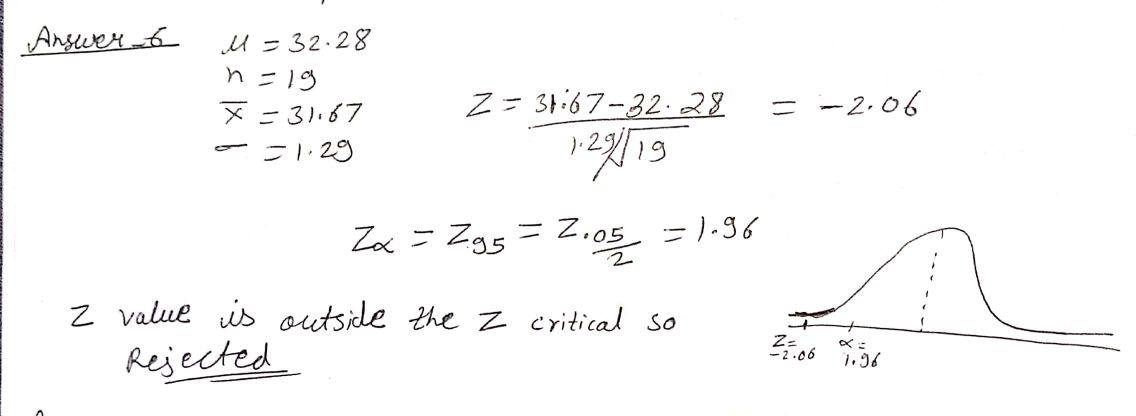 Answer-6
μ = 32.28
n = 19
x̄ = 31.67
σ = 1.29
Z = 31.67-32.28 / 1.29/√19 = -2.06
Zα = Z95 = Z.05/2 = 1.96
Z value is outside the Z critical so
Rejected
Z= -2.06
α= 1.96